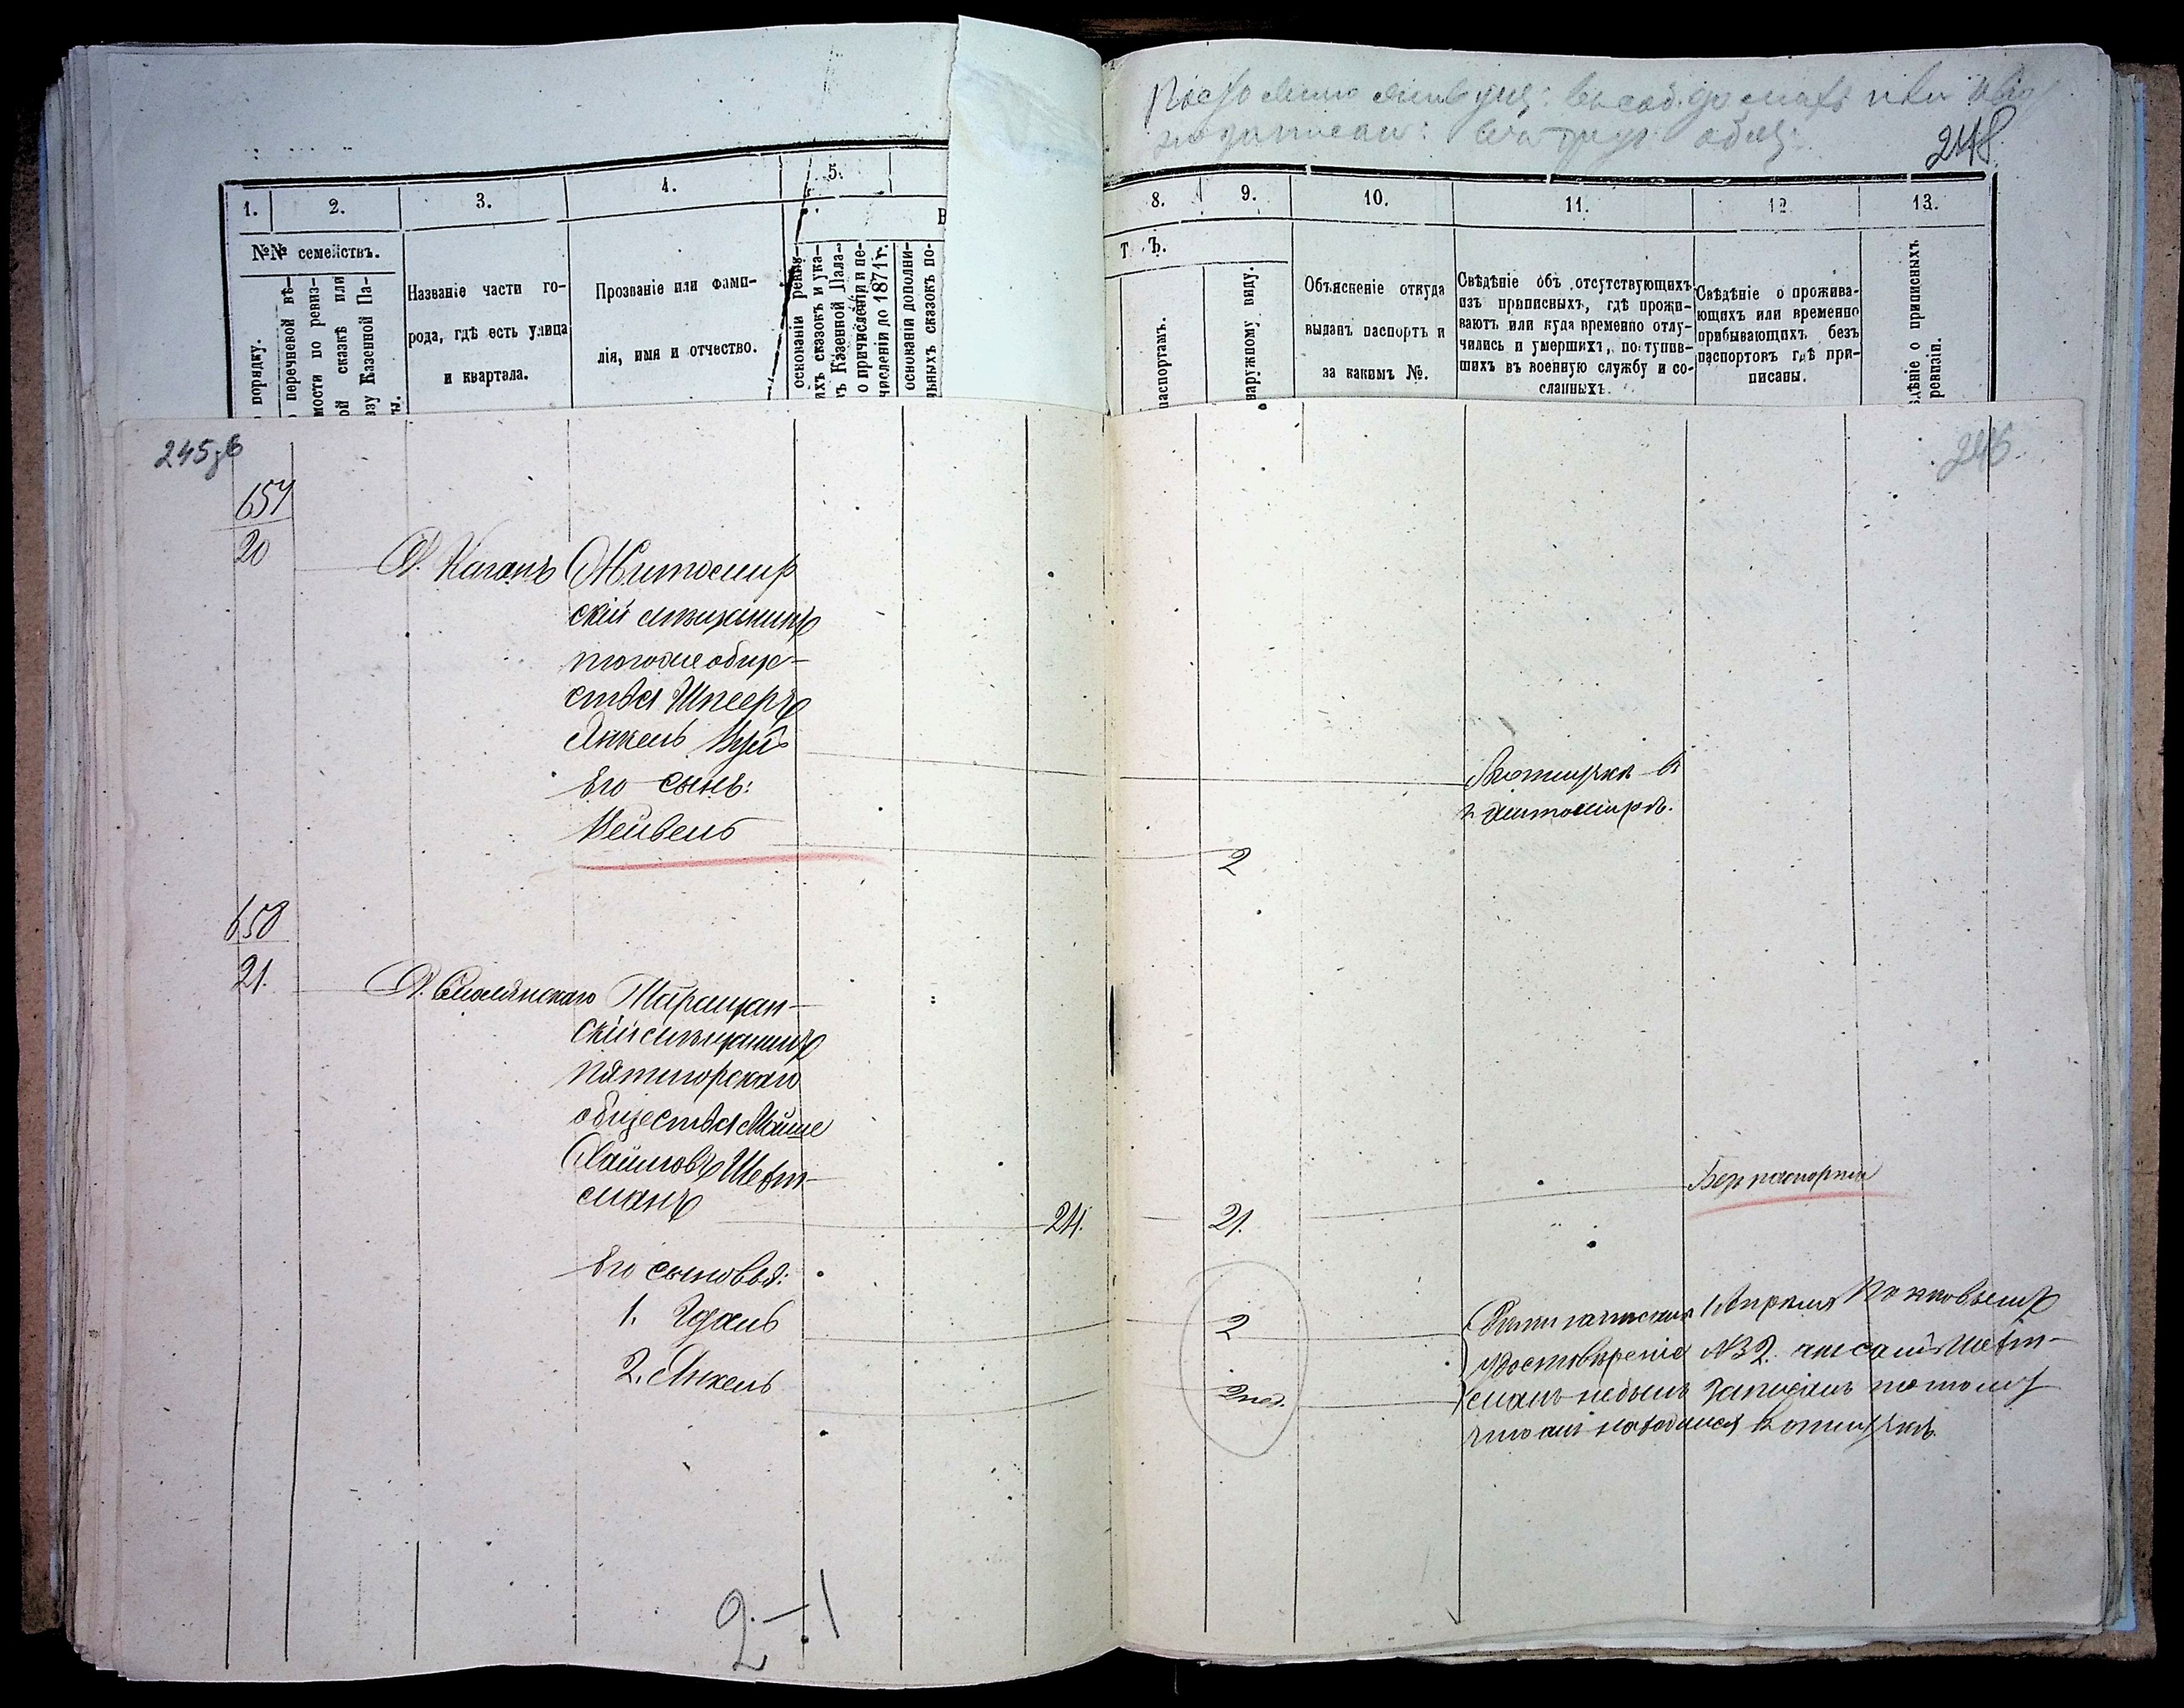 248
1. 2. 3. 4. 5.
8. 9. 10. 11. 12 13.
№№ семействъ.
В
Т Ъ.
порядку.
перечневой вѣ-
мости по ревиз-
ой сказкѣ или
азу Казенной Па-
ты.
Названіе части го-
рода, гдѣ есть улица
и квартала.
Прозваніе или фами-
лія, имя и отчество.
основаніи ревиз-
ихъ сказокъ и ука-
ъ Казенной Пала-
о причисленіи и пе-
численіи до 1871 г.
основаніи дополни-
льныхъ сказокъ по-
паспортамъ.
наружному виду.
Объясненіе откуда
выданъ паспортъ и
за какимъ №.
Свѣдѣніе объ отсутствующихъ
изъ приписныхъ, гдѣ прожи-
ваютъ или куда временно отлу-
чились и умершихъ, поступив-
шихъ въ военную службу и со-
сланныхъ.
Свѣдѣніе о прожива-
ющихъ или временно
прибывающихъ безъ
паспортовъ гдѣ при-
писаны.
дѣніе о приписныхъ
ревизіи.
245об
246
657
20
Д. Каганъ Житомир
скій мѣщанинъ
того же обще-
ства Шпееръ
Янкель
Его сынъ:
Лейвель
въ отлучкѣ въ
г. Житомирѣ.
2
658
21.
Д. Смолянскаго Таращан-
скій мѣщанинъ
Пятигорскаго
общества Мойше
Хаимовъ
манъ
24.
21.
Безъ паспорта
Его сыновья:
1. Идель
2. Янкель
2
2 нед.
1 Апрѣля
удостовѣреніе №32. самъ
манъ небылъ записанъ потому
что онъ находился въ отлучкѣ
2-1